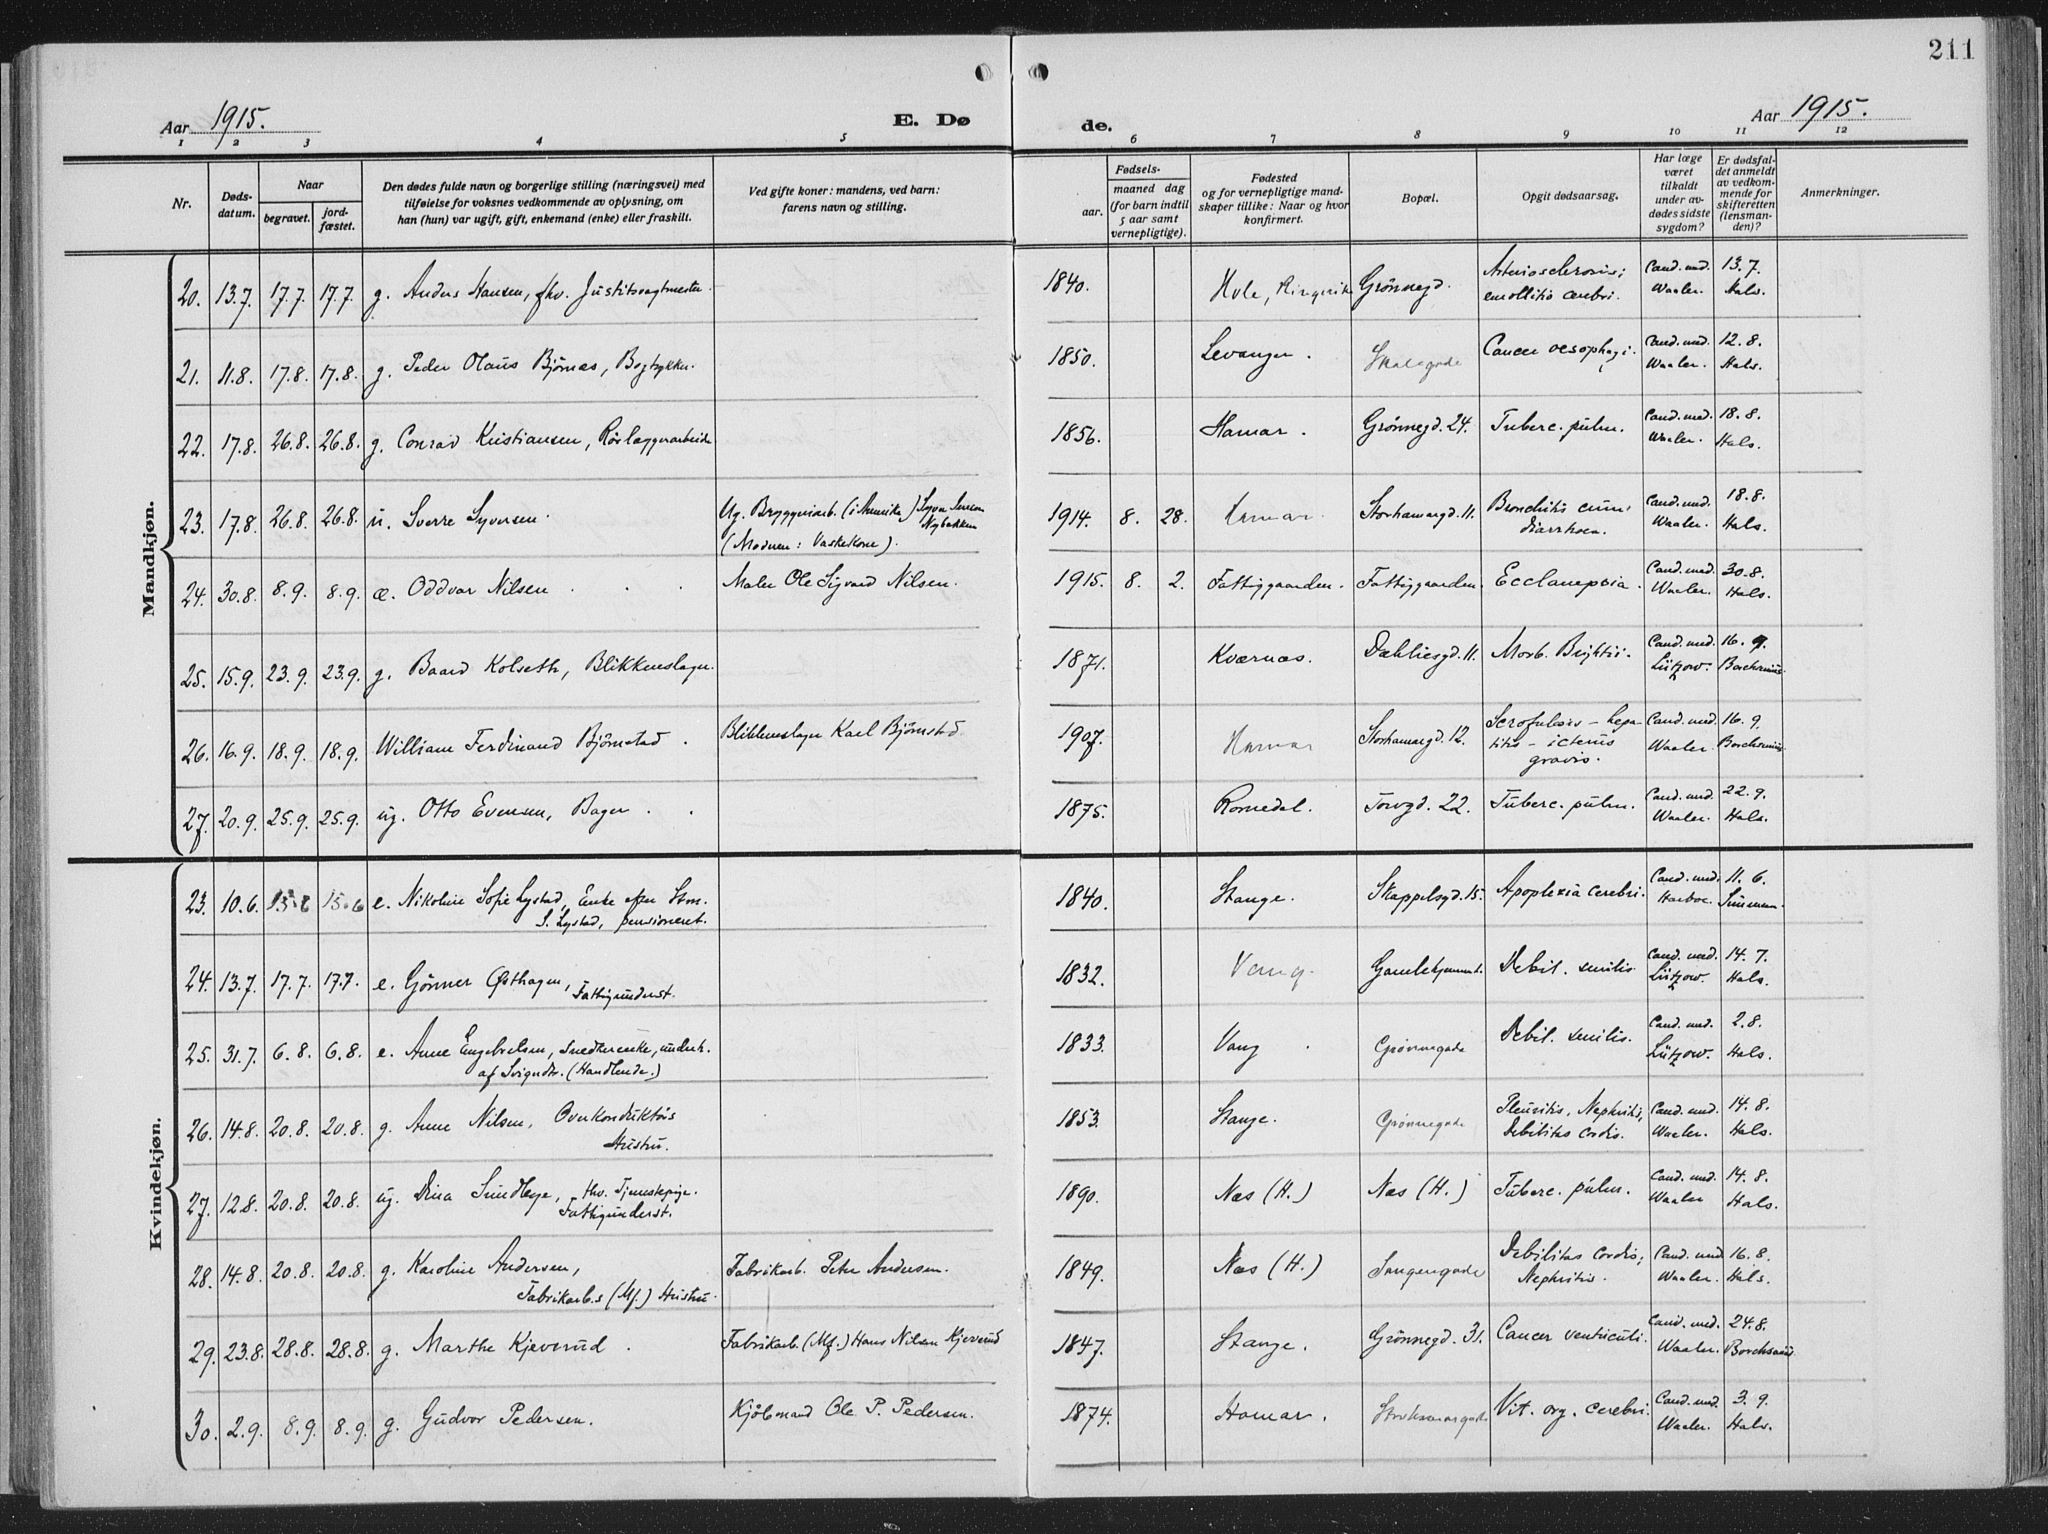 211
Aar 1915.
E. Dø
de.
Aar 1915.
1 2 3 4 5 6 7 8 9 10 11 12
Nr.
Døds-
datum.
Naar
begravet.
jord-
fæstet.
Den dødes fulde navn og borgerlige stilling (næringsvei) med
tilføielse for voksnes vedkommende av oplysning, om
han (hun) var ugift, gift, enkemand (enke) eller fraskilt.
Ved gifte koner: mandens, ved barn:
farens navn og stilling.
Fødsels-
aar.
maaned dag
(for barn indtil
5 aar samt
vernepligtige).
Fødested
og for vernepligtige mand-
skaper tillike: Naar og hvor
konfirmert.
Bopæl.
Opgit dødsaarsag.
Har læge
været
tilkaldt
under av-
dødes sidste
sygdom?
Er dødsfal-
det anmeldt
av vedkom-
mende for
skifteretten
(lensman-
den)?
Anmerkninger.
Mandkjøn.
20. 13.7. 17.7. 17.7. g. Anders Hansen, fhv. Justitsvagtmester. 1840. Hole, Ringerike Grønnegd. Arteriosclerosis; Cand. med. 13.7.
emollitio cerebri. Waaler. Hals.
21. 11.8. 17.8. 17.8. g. Peder Olaus Bjørnas, Bogtrykker. 1850. Levanger. Skolegade Cancer oesophagi. Cand. med. 12.8.
Waaler. Hals.
22. 17.8. 26.8. 26.8. g. Conrad Kristiansen, Rørlæggerarbeider 1856. Hamar. Grønnegd. 24. Tuberc. pulm. Cand. med. 18.8.
Waaler. Hals.
23. 17.8. 26.8. 26.8. u. Sverre Syversen. Ug. Bryggeriarb. (i Amerika) 1914. 8. 28. Hamar. Storhamargd. 11. Bronchitis cum Cand. med. 18.8.
Nybakken diarrhoea. Waaler. Hals.
(Moderen: Vaskekone).
24. 30.8. 8.9. 8.9. æ. Oddvar Nilsen Maler Ole Sigvard Nilsen. 1915. 8. 2. Fattiggaarden. Fattiggaarden. Ecclampsia. Cand. med. 30.8.
Waaler. Hals.
25. 15.9. 23.9. 23.9. g. Baard Kolseth, Blikkenslager. 1871. Kværnæs. Dahliesgd. 11. Morb. Brightii. Cand. med. 16.9.
Lützow. Borchsenius
26. 16.9. 18.9. 18.9. William Ferdinand Bjørnstad. Blikkenslager Karl Bjørnstad. 1907. Hamar Storhamargd. 12. Scrofulosis - hepa- Cand. med. 16.9.
titis - icterus Waaler. Borchsenius
gravis.
27. 20.9. 25.9. 25.9. ug. Otto Evensen, Bager. 1875. Romedal. Torvgd. 22. Tuberc. pulm. Cand. med. 22.9.
Waaler. Hals.
Kvindekjøn.
23. 10.6. 15.6 15.6 e. Nikoline Sofie Lystad, Enke efter Stm. 1840. Stange. Skappelsgd. 15. Apoplexia cerebri. Cand. med. 11.6.
S. Lystad, pensioneret. Harboe.
24. 13.7. 17.7. 17.7. e. Gönner Østhagen, 1832. Vang. Gamlehjemmet. Debil. senilis. Cand. med. 14.7.
Fattigunderst. Lützow. Hals.
25. 31.7. 6.8. 6.8. e. Anne Engebretsen, Snedkerenke, underh. 1833. Vang. Grønnegade Debil. senilis. Cand. med. 2.8.
af Svigerdtr. (Handlende.) Lützow. Hals.
26. 14.8. 20.8. 20.8. g. Anne Nilsen, Overkonduktørs 1853. Stange. Grønnegade Pleuritis, Nephritis, Cand. med. 14.8.
Hustru. Debilitas cordis. Waaler. Hals.
27. 12.8. 20.8. 20.8. ug. Dina Sundheye, fhv. Tjenestepige. 1890. Næs (H.) Næs (H.) Tuberc. pulm. Cand. med. 14.8.
Fattigunderst. Waaler Hals.
28. 14.8. 20.8. 20.8. g. Karoline Andersen, Fabrikarb. Peter Andersen. 1849. Næs (H.) Tangengade Debilitas cordis; Cand. med 16.8.
Fabrikarb.s (Mf.) Hustru. Nephritis. Waaler. Hals.
29. 23.8. 28.8. 28.8. g. Marthe Kjeverud. Fabrikarb. (Mf.) Hans Nilsen Kjeverud 1847. Stange. Grønnegd. 31. Cancer ventriculi. Cand. med. 24.8.
Waaler. Borchsenius
30. 2.9. 8.9. 8.9. g. Gudvor Pedersen. Kjøbmand Ole P. Pedersen. 1874. Hamar. Storhamargade Vit. org. cerebri. Cand. med. 3.9.
Waaler. Hals.